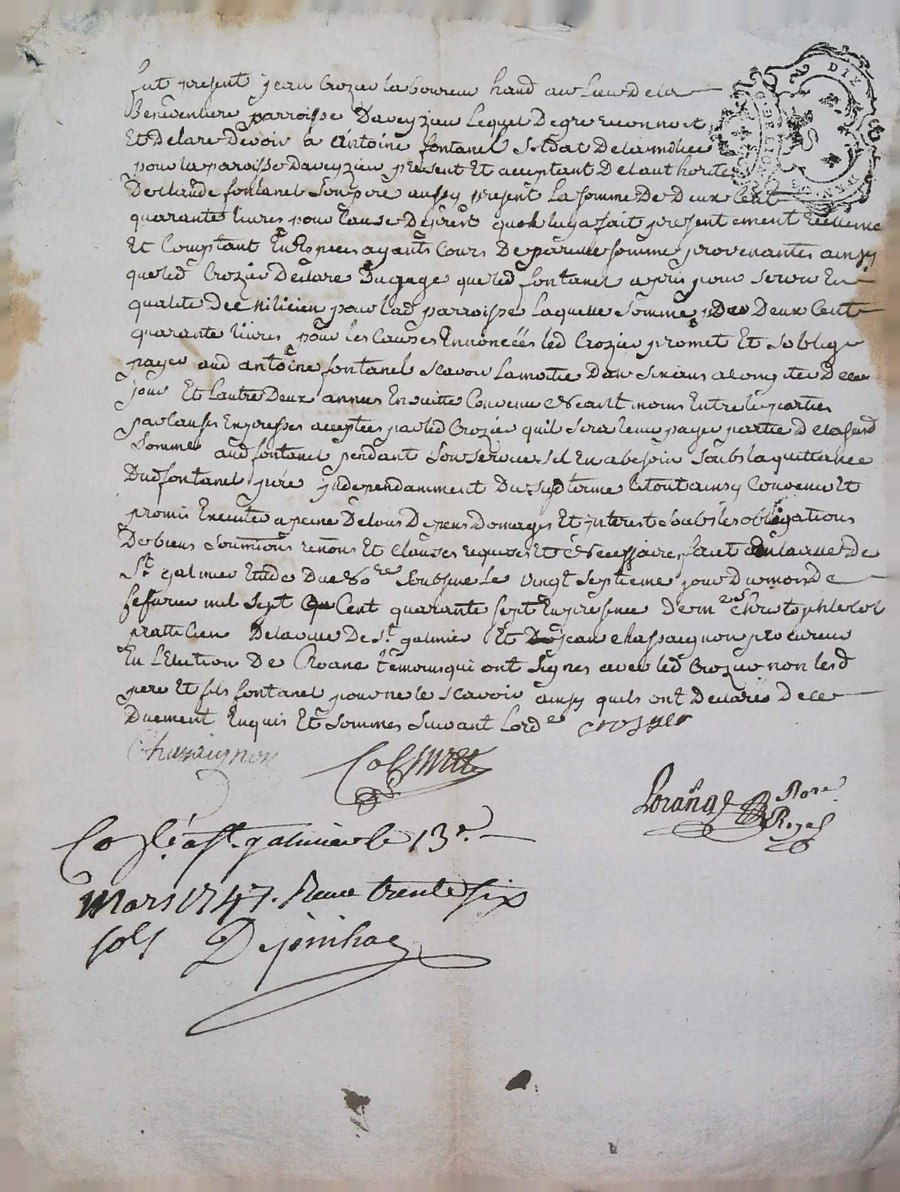 fut present jean Crozier laboureur habd au Lieu De la
Beneventure parroisse Daveyzieu Lequel De gre Reconnoit
Et Declare Devoir a Antoine fontanel Soldat De la milice
pour la paroisse Daveyzieu present Et aceptant De lauthorité
De Claude fontanel Son pere aussy present La somme De Deux Cent
quarante livres pour Cause De prest quok luy a fait presentement
Et Comptant En Especes ayants Cours De pareille somme provenantes ainsy
que led Crozier Declare Du gage que led fontanel a pris pour servir En
qualité De Milicien pour lad parroisse Laquelle Somme De Deux Cent
quarante livres pour les Causes Ennoncéés led Crozier promet Et soblige
payer aud antoine fontanel scavoir La moitie Dans six ans a Compter De ce
jour Et Lautre Deux annés En suitte Convenu Neant moins Entre le parties
par Clauses Expresses acceptees par led Crozier quil sera tenu payer partie De lasusd
Somme aud fontanel pendant Son service sil En a besoin Soubs la quittance
Dud fontanel pére jndependamment Du susd terme Le tout ainsy Convenu Et
promis Executer a peine De tous Depens Domages Et jnterest soubs les obligations
De biens soumissions renons Et Clauses requises Et Necessaire, fait En la ville De
St galmier Etude Du No.re Soubsigne Le vingt Septieme jour Du mois De
fefurier mil Sept Cent quarante Sept En presence De m.e Christophle Col
pratticien De la ville De St. galmier Et De jean Chassaegnon procureur
En l'Election De Roane temoins qui ont Signes avec led Crozier non lesd
pere Et fils fontanel pour ne le Scavoir ainsy quils ont Declarés De ce
Duement Enquis Et Sommes Suivant Lord.e crosyer
Chassaignon
Col
Lorange Nore. Royal
Co.lé a St. galmier le 13e.
Mars 1747. Receu trente six
sols Dejoinhac
DIX